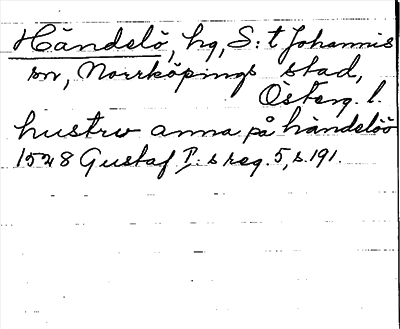 Händelö, hg, S:t Johannis
sn, Norrköpings stad,
Österg. l.
hustrv anna på händelöö
1528 Gustaf I:s reg. 5, s. 191.